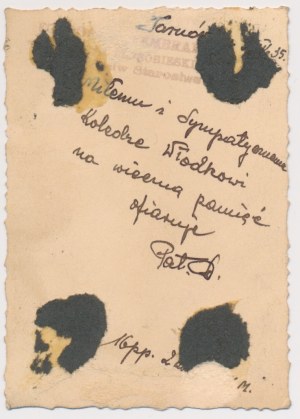 Tarnów 35.
Miłemu i Sympatycznemu
Koledze Włodkowi
na wieczną pamięć
ofiaruje
Pat. D.
16pp. 2